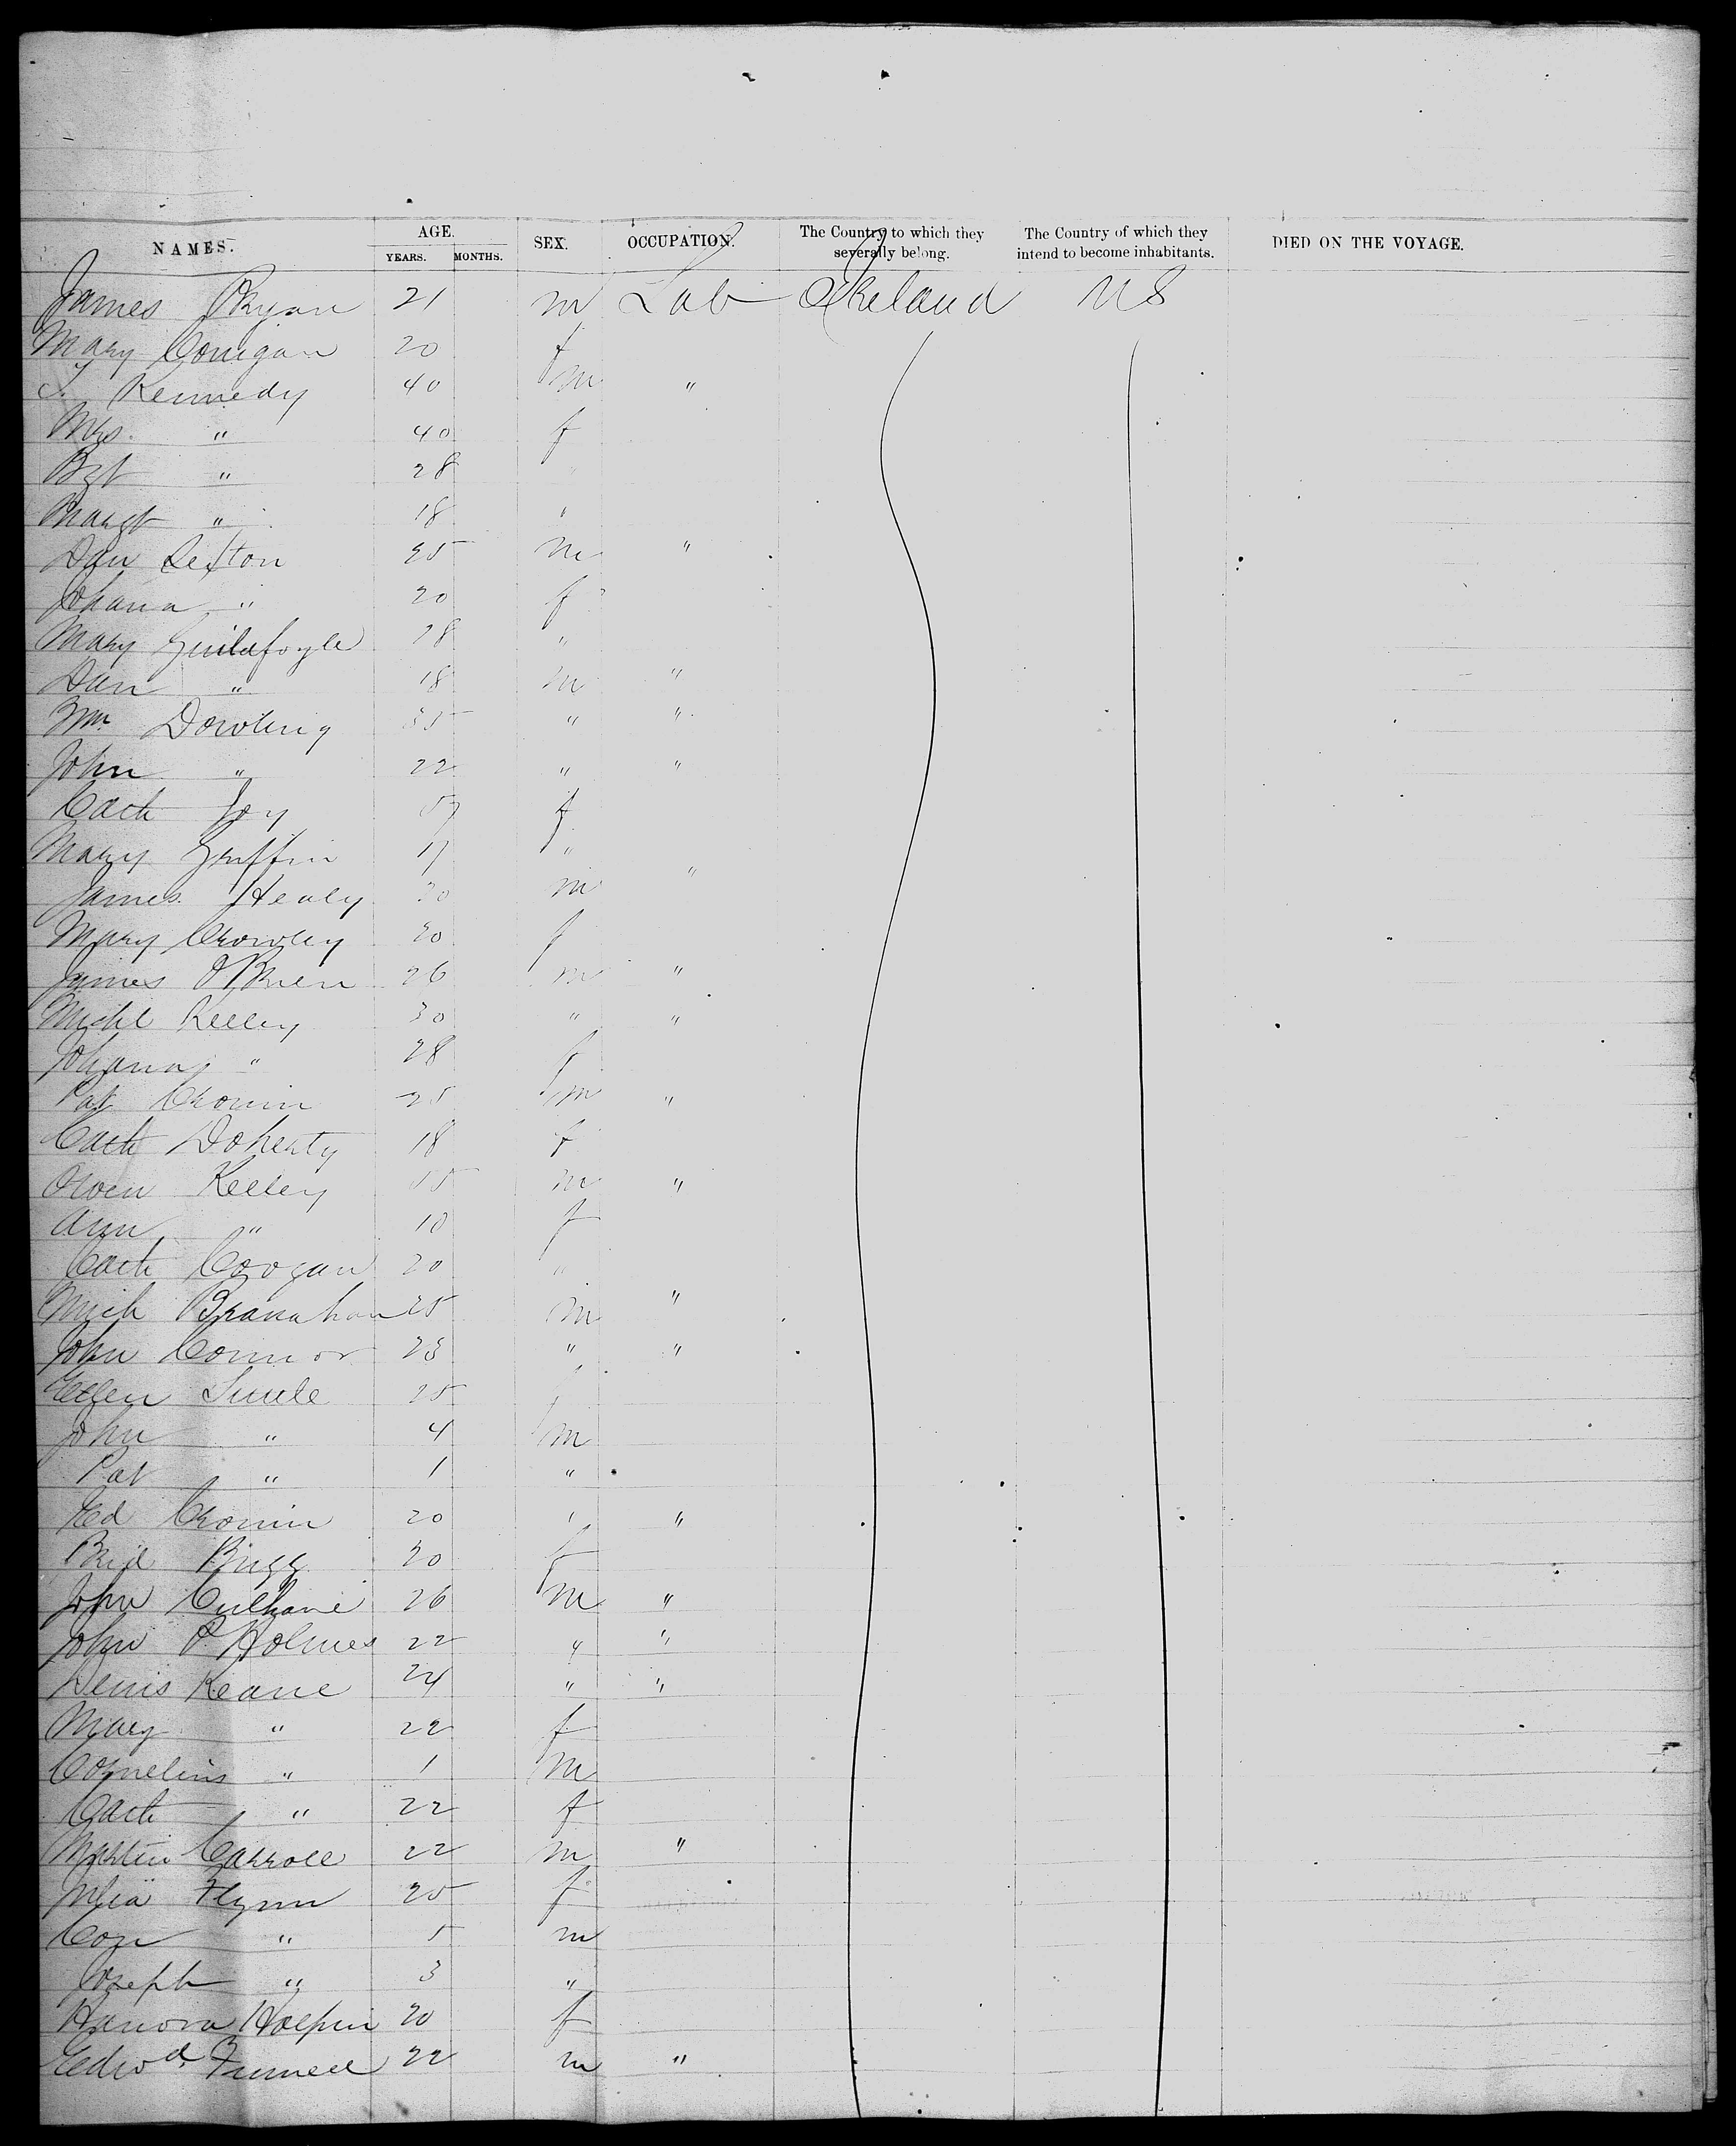 NAMES. AGE. YEARS. MONTHS. SEX. OCCUPATION. The Country to which they severally belong. The Country of which they intend to become inhabitants. DIED ON THE VOYAGE.
James Ryan 21 m Lab Ireland US
Mary Corrigan 20 f
T. Kennedy 40 m "
Mrs. " 40 f
Bgt " 28 "
Margt " 18 "
Dan Sexton 25 m "
Johana " 20 f
Mary Guildfoyle 18 "
Dan " 18 m "
Wm. Dowling 35 " "
John " 22 " "
Cath Joy f
Mary Griffin 17 "
James Healy 20 m "
Mary Crowley 20 f
James O'Brien 26 m "
Michl Kelley 30 " "
Johana " 28 f
Pat Cronin 25 m "
Cath Doherty 18 f
Owen Kelley 15 m "
Ann " 10 f
Cath Coogan 20 "
Mich Branahan 25 m "
John Connor 23 " "
Ellen 25 f
John " 4 m
Pat " 1 "
Ed Cronin 20 " "
Brid 20 f
John Culhane 26 m "
John P Holmes 22 " "
Denis Keane 24 " "
Mary " 22 f
Cornelius " 1 m
Cath " 22 f
Martin Carroll 22 m "
Julia Flynn 25 f
Con " 5 m
Joseph " 3 "
Hanora Halpin 20 f
Edwd. 22 m "